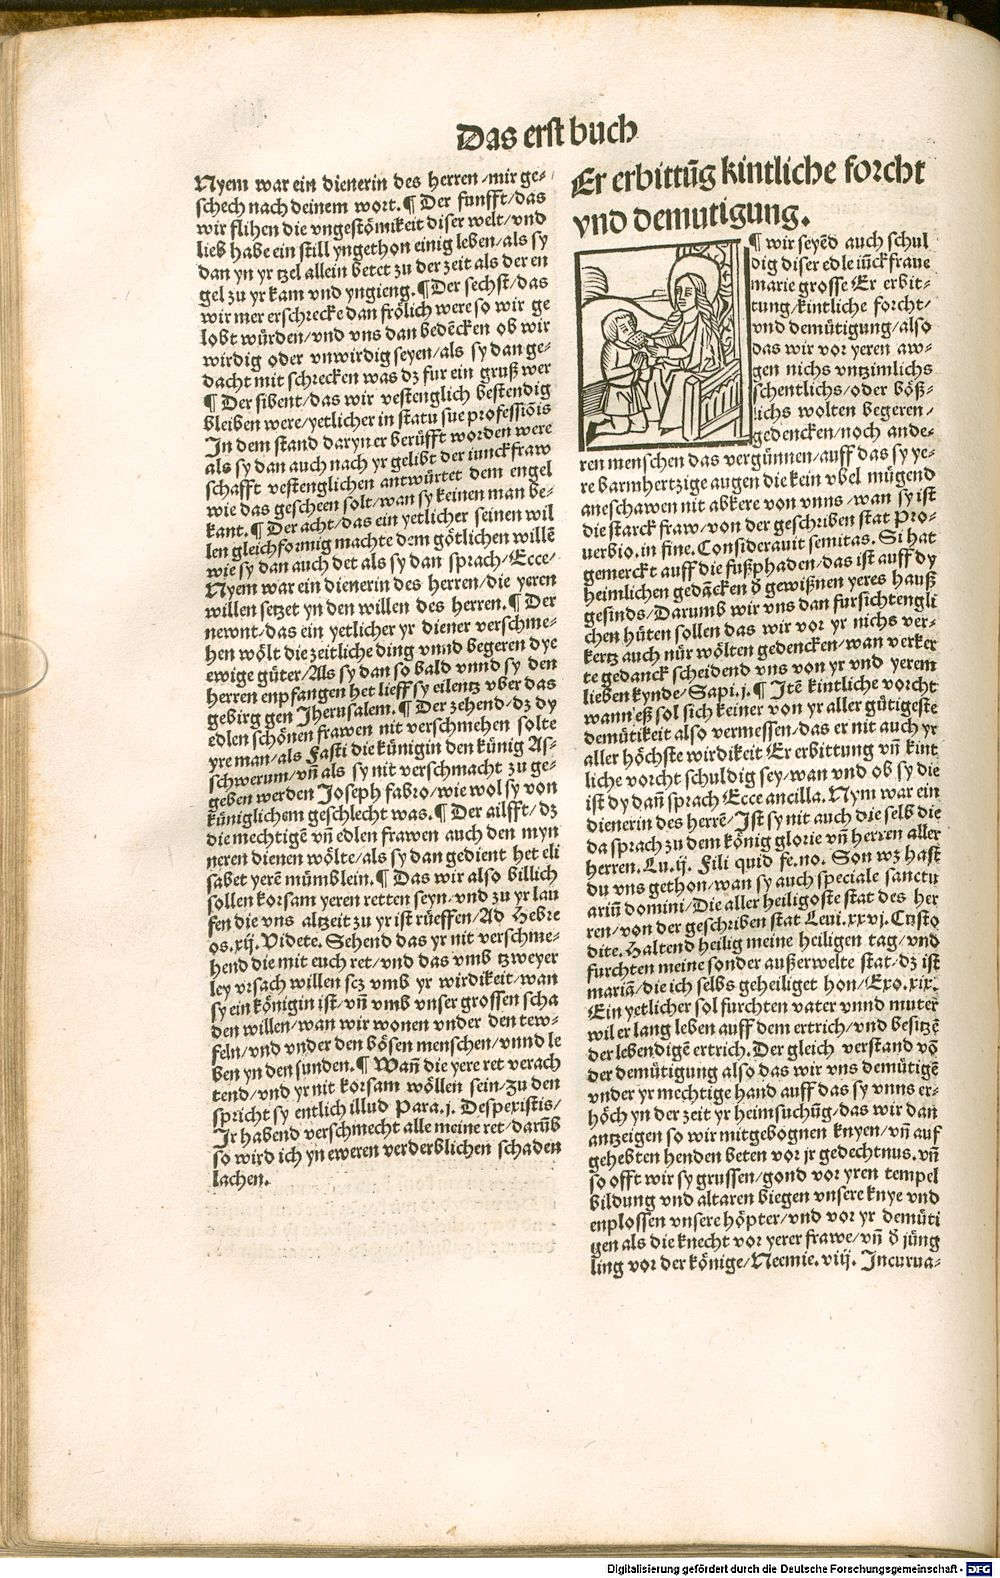 Das erst buch
Nyem war ein dienerin des herren/mir ge⸗
schech nach deinem wort.¶ Der funfft/das
wir flihen die vngestömikeit diser welt/vnd
lieb habe ein still yngethon einig leben/als sy
dan yn yr tzel allein betet zu der zeit als der en
gel zu yr kam vnd yngieng.¶ Der sechst/das
wir mer erschrecke dan frölich were so wir ge
lobt würden/vnd vns dan bedēcken ob wir
wirdig oder vnwirdig seyen/als sy dan ge⸗
dacht mit schrecken was dz fur ein gruß wer
¶ Der sibent/das wir vestenglich bestendig
bleiben were/yetlicher in statu sue professiōis
In dem stand daryn er berüfft worden were
als sy dan auch nach yr gelibt der iunckfraw
schafft vestenglichen antwürtet dem engel
wie das gescheen solt/wan sy keinen man be⸗
kant.¶ Der acht/das ein yetlicher seinen wil
len gleichformig machte dem götlichen willē
wie sy dan auch det als sy dan sprach/Ecce⸗
Nyem war ein dienerin des herren/die yeren
willen setzet yn den willen des herren.¶ Der
newnt/das ein yetlicher yr diener verschme⸗
hen wölt die zeitliche ding vnnd begeren dye
ewige güter/Als sy dan so bald vnnd sy den
herren enpfangen het lieff sy eilentz vber das
gebirg gen Jherusalem.¶ Der zehend/dz dy
edlen schönen frawen nit verschmehen solte
yre man/als Fasti die künigin den künig As⸗
schwerum/vn̄ als sy nit verschmacht zu ge⸗
geben werden Joseph fabro/wie wol sy von
küniglichem geschlecht was.¶ Der ailfft/dz
die mechtigē vn̄ edlen frawen auch den myn
neren dienen wölte/als sy dan gedient het eli
sabet yerē mümblein.¶ Das wir also billich
sollen korsam yeren retten seyn/vnd zu yr lau
fen die vns altzeit zu yr ist rüeffen/Ad Hebre
os.xij.Videte. Sehend das yr nit verschme⸗
hend die mit euch ret/vnd das vmb tzweyer
ley vrsach willen scz vmb yr wirdikeit/wan
sy ein königin ist/vn̄ vmb vnser grossen scha
den willen/wan wir wonen vnder den tew⸗
feln/vnd vnder den bösen menschen/vnnd le
ben yn den sunden.¶ Wan̄ die yere ret verach
tend/vnd yr nit korsam wöllen sein/zu den
spricht sy entlich illud Para.j. Despexistis/
Ir habend verschmecht alle meine ret/darūb
so wird ich yn eweren verderblichen schaden
lachen.
Er erbittūg kintliche forcht
vnd demutigung.
¶ wir seyēd auch schul
dig diser edle iūckfraue
marie grosse Er erbit⸗
tung/kintliche forcht/
vnd demütigung/also
das wir vor yeren aw⸗
gen nichs vntzimlichs
schentlichs/oder böß⸗
lichs wolten begeren/
gedencken/noch ande⸗
ren menschen das vergünnen/auff das sy ye⸗
re barmhertzige augen die kein vbel mügend
aneschawen nit abkere von vnns/wan sy ist
die starck fraw/von der geschriben stat Pro⸗
uerbio.in fine. Considerauit semitas. Si hat
gemerckt auff die fußphaden/das ist auff dy
heimlichen gedācken d̕ gewißnen yeres hauß
gesinds/Darumb wir vns dan fursichtengli
chen hüten sollen das wir vor yr nichs ver⸗
kertz auch nür wölten gedencken/wan verker
te gedanck scheidend vns von yr vnd yerem
lieben kynde/Sapi.j.¶ Itē kintliche vorcht
wann eß sol sich keiner von yr aller gütigeste
demütikeit also vermessen/das er nit auch yr
aller höchste wirdikeit Er erbittung vn̄ kint
liche vorcht schuldig sey/wan vnd ob sy die
ist dy dan̄ sprach Ecce ancilla. Nym war ein
dienerin des herrē/Ist sy nit auch die selb die
da sprach zu dem könig glorie vn̄ herren aller
herren. Lu.ij. Fili quid fe.no. Son wz hast
du vns gethon/wan sy auch speciale sanctu
ariū domini/Die aller heiligoste stat des her
ren/von der geschriben stat Leui.xxvj. Custo
dite. Haltend heilig meine heiligen tag/vnd
furchten meine sonder außerwelte stat/dz ist
mariā/die ich selbs geheiliget hon/Exo.xix.
Ein yetlicher sol furchten vater vnnd muter
wil er lang leben auff dem ertrich/vnd besitzē
der lebendigē ertrich. Der gleich verstand vō
der demütigung also das wir vns demütigē
vnder yr mechtige hand auff das sy vnns er⸗
höch yn der zeit yr heimsuchūg/das wir dan
antzeigen so wir mitgebognen knyen/vn̄ auf
gehebten henden beten vor jr gedechtnus.vn̄
so offt wir sy grussen/gond vor yren tempel
bildung vnd altaren biegen vnsere knye vnd
enplossen vnsere höpter/vnd vor yr demüti
gen als die knecht vor yerer frawe/vn̄ d̕ jüng
ling vor der könige/Neemie.viij. Incurua⸗
Digitalisierung gefördert durch die Deutsche Forschungsgemeinschaft - DFG